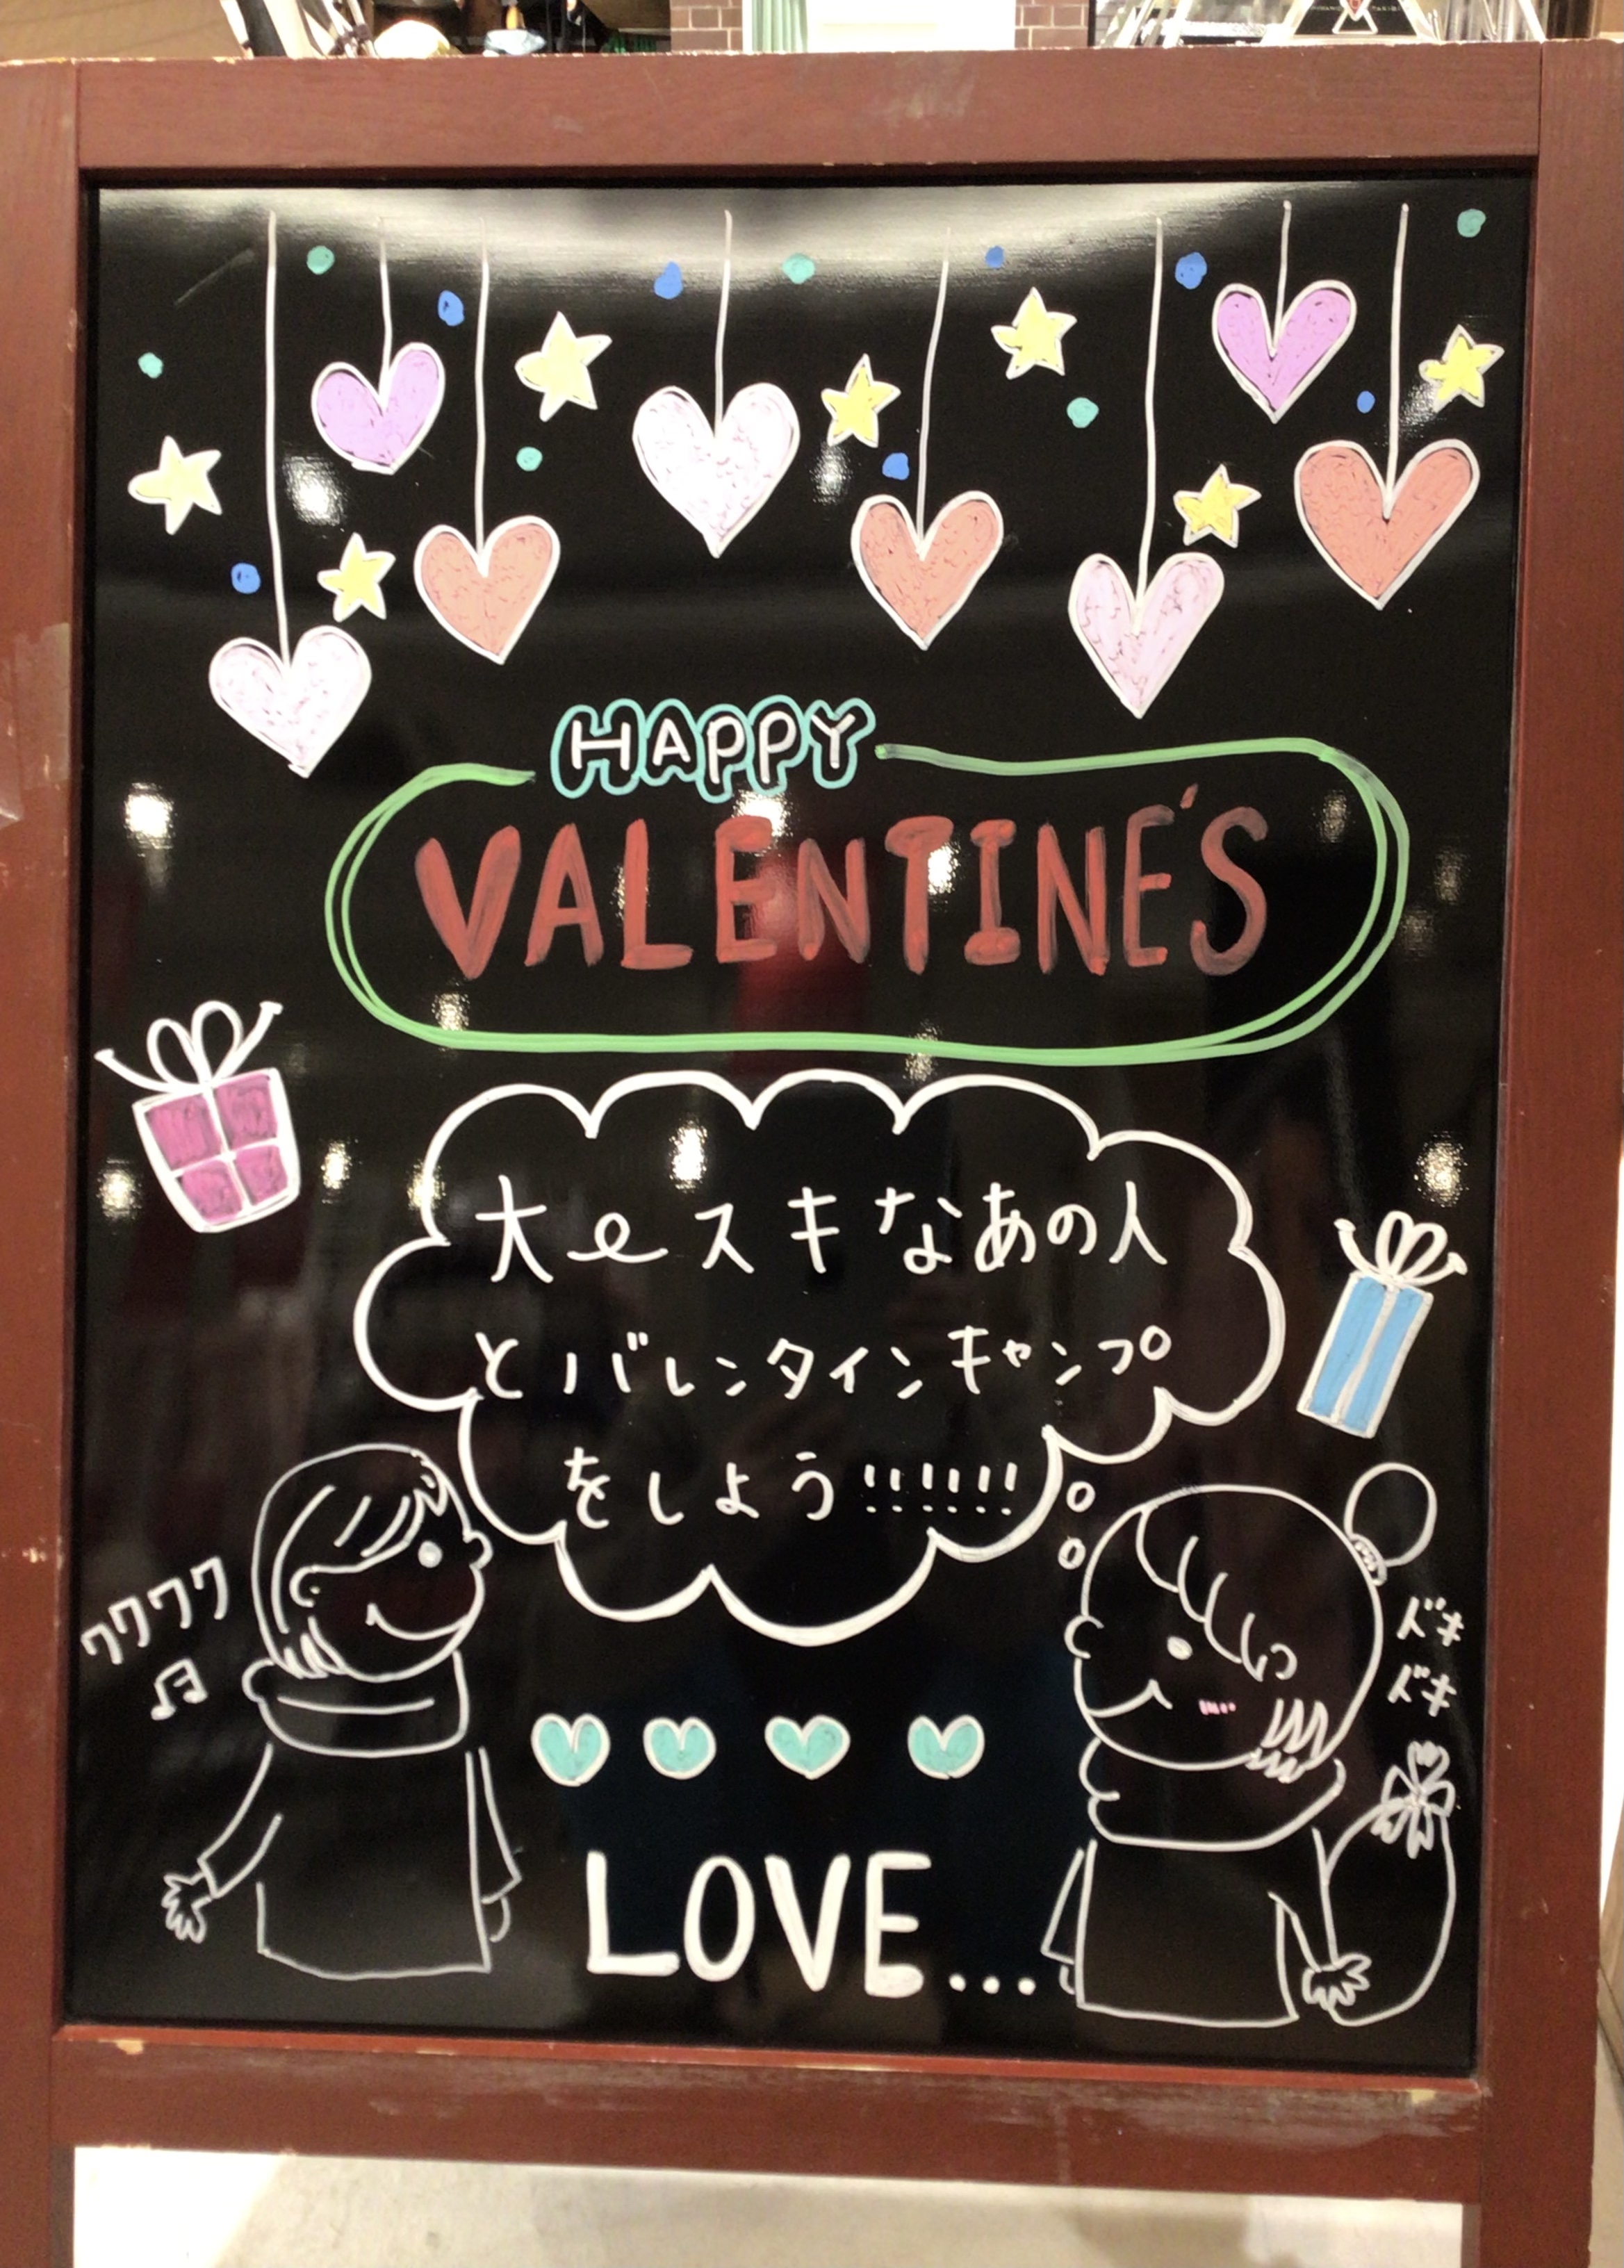 HAPPY
VALENTINE'S
大eスキなあの人
とバレンタインキャンプ
をしよう!!!!!!
ワクワク
ドキ
ドキ
LOVE...